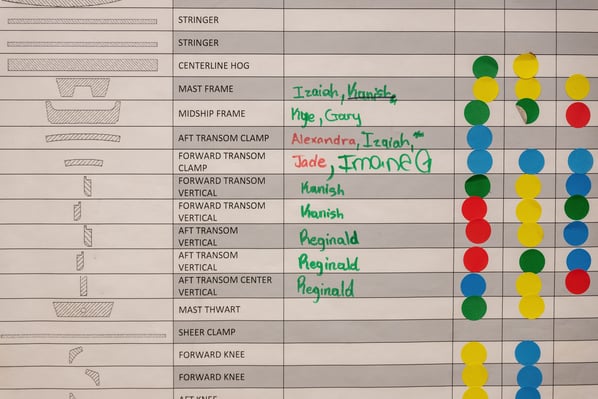 STRINGER
STRINGER
CENTERLINE HOG
MAST FRAME Izaiah, Kanish
MIDSHIP FRAME Kye, Gary
AFT TRANSOM CLAMP Alexandra, Izaiah,
FORWARD TRANSOM
CLAMP
Jade, Imane G
FORWARD TRANSOM
VERTICAL
Kanish
FORWARD TRANSOM
VERTICAL
Kanish
AFT TRANSOM
VERTICAL
Reginald
AFT TRANSOM
VERTICAL
Reginald
AFT TRANSOM CENTER
VERTICAL
Reginald
MAST THWART
SHEER CLAMP
FORWARD KNEE
FORWARD KNEE
AFT KNEE